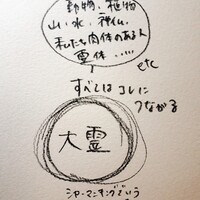 動物、植物
山・水、神仏、
私たち肉体のある人
霊体……
etc
すべてはコレに
つながる
大霊
シャーマンキングでいう